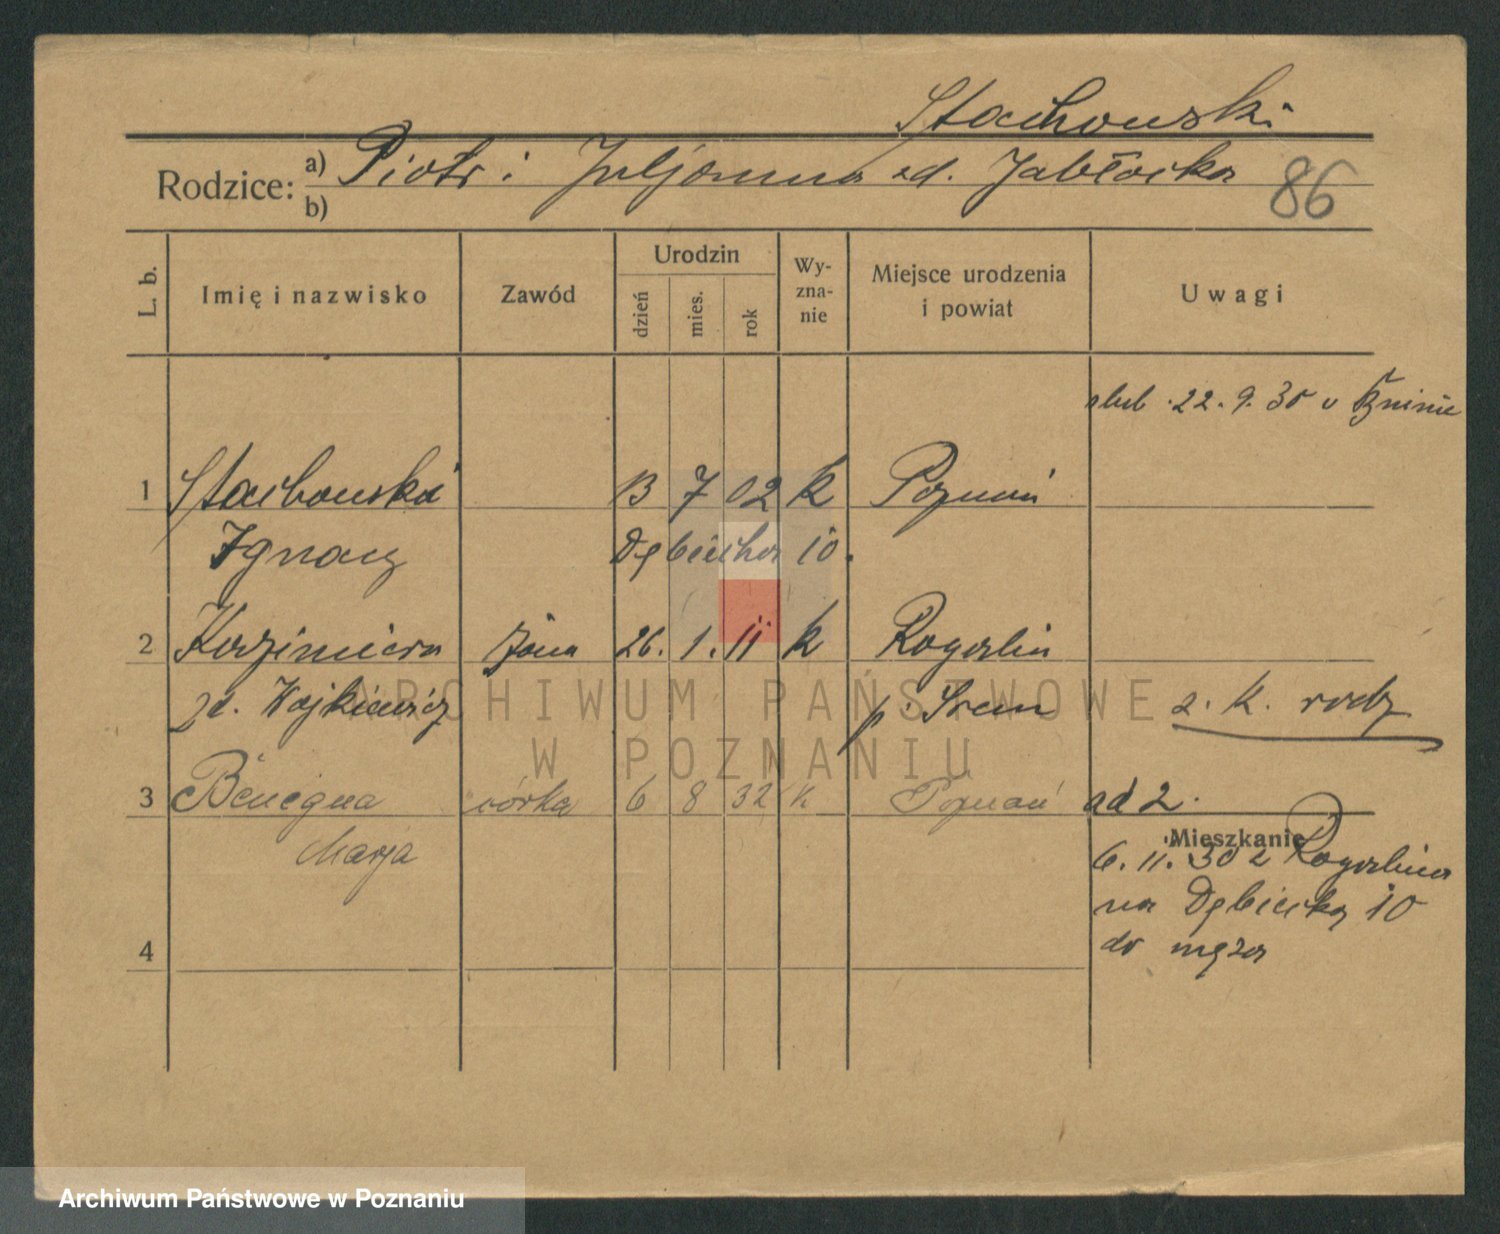 Stachowski
Rodzice: a) Piotr i Juljanna zd. Jabłocka
b)
86
L. b.
Imię i nazwisko
Zawód
Urodzin
dzień
mies.
rok
Wy-
zna-
nie
Miejsce urodzenia
i powiat
Uwagi
ślub 22.9.30 v
1 Stachowski 13 7 02 k Poznań
Ignacy Dębiecka 10.
2 Kazimiera żona 26. 1. 11 k Rogalin
zd. Wojkiewicz p. Śrem z. K. rodz
3 Benegna córka 6 8 32 k Poznań ad 2.
Marja
Mieszkanie
6. 11. 30 z Rogalina
na Dębiecką 10
do męża
4
ARCHIWUM PAŃSTWOWE
W POZNANIU
Archiwum Państwowe w Poznaniu